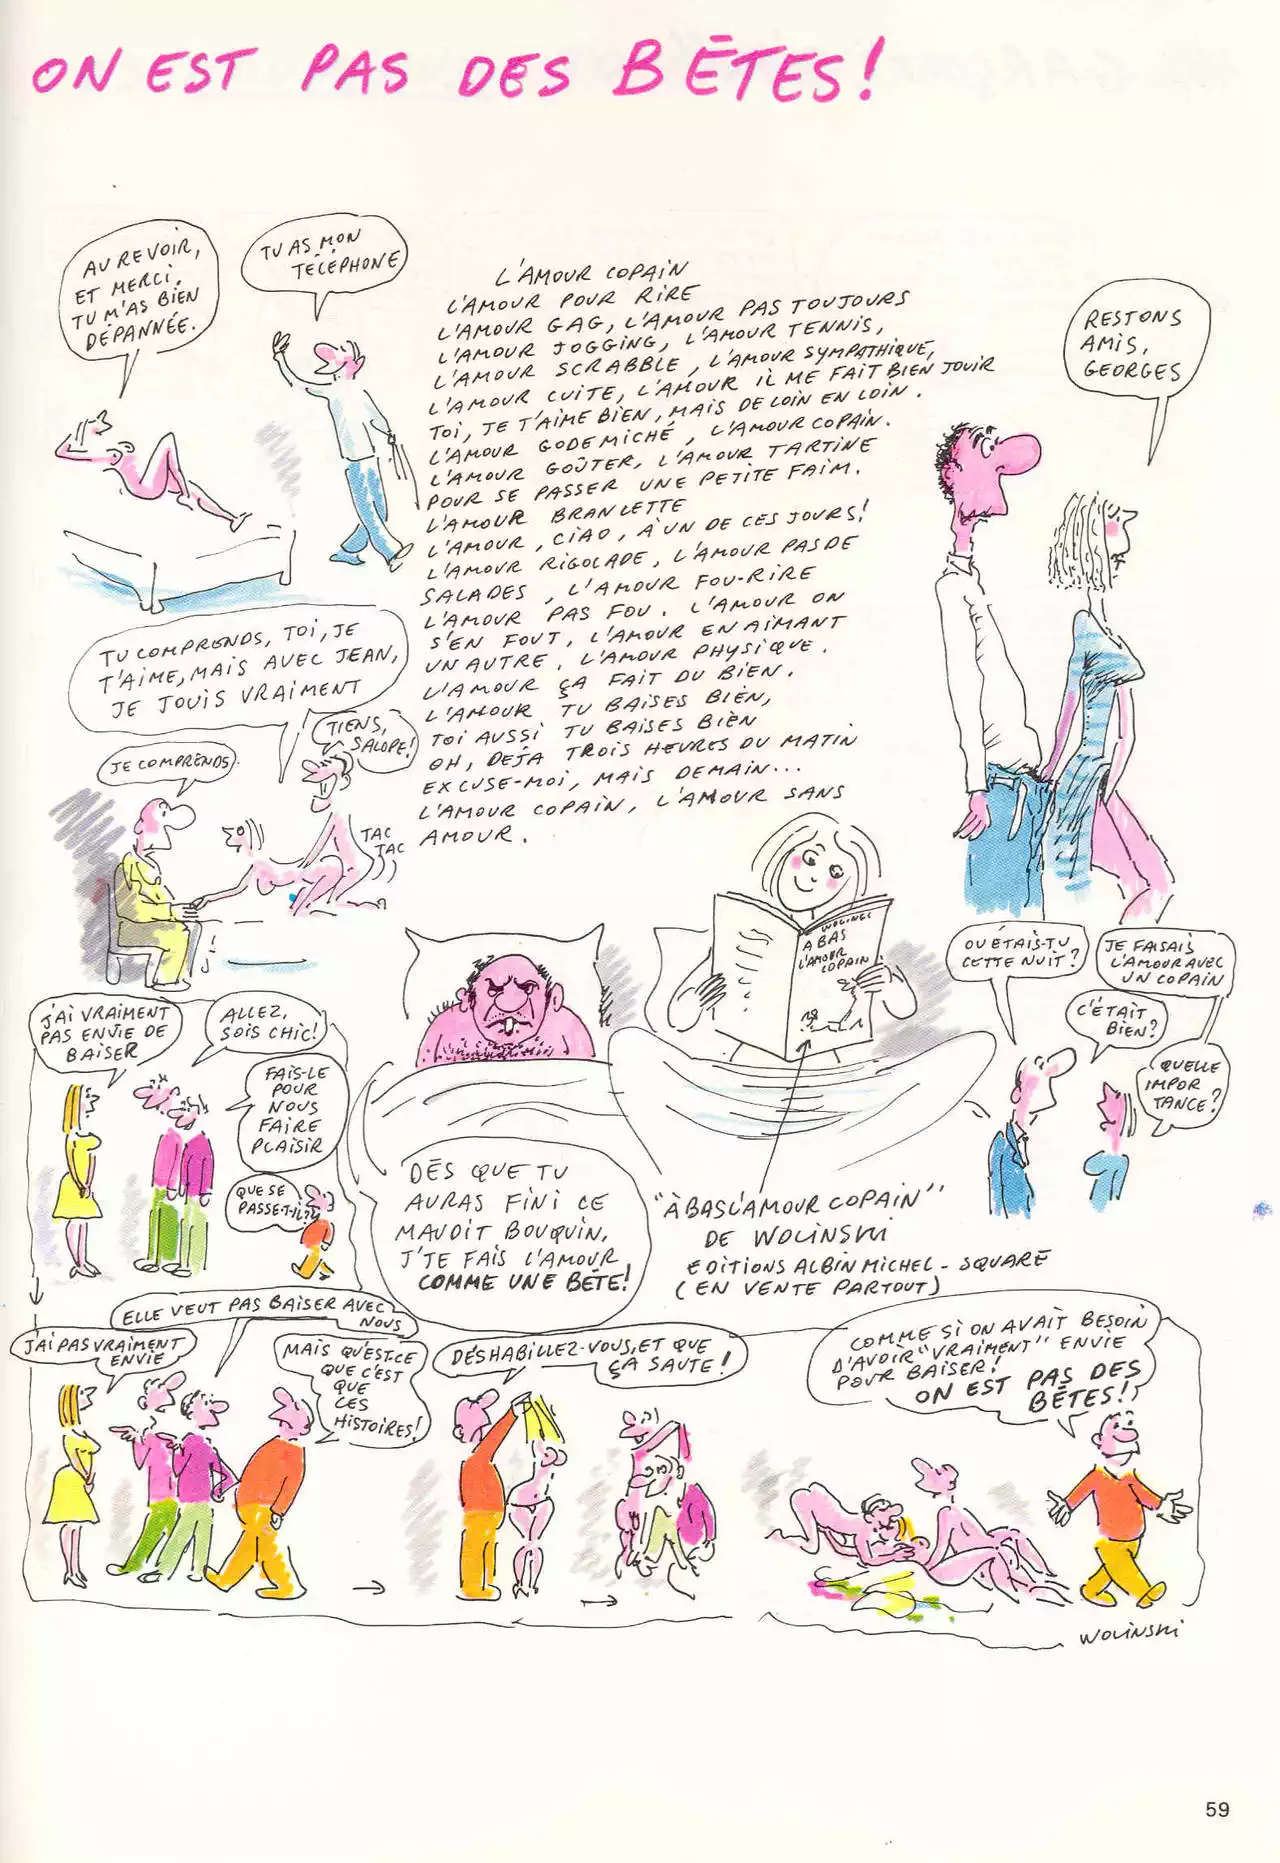 ON EST PAS DES BÊTES!
AU REVOIR,
ET MERCI.
TU M'AS BIEN
DÉPANNÉE.
TU AS MON
TÉLÉPHONE
L'AMOUR COPAIN
L'AMOUR POUR RIRE
L'AMOUR GAG, L'AMOUR PAS TOUJOURS
L'AMOUR JOGGING, L'AMOUR TENNIS,
L'AMOUR SCRABBLE, L'AMOUR SYMPATHIQUE,
L'AMOUR CUITE, L'AMOUR IL ME FAIT BIEN JOUIR
TOI, JE T'AIME BIEN, MAIS DE LOIN EN LOIN.
L'AMOUR GODEMICHÉ, L'AMOUR COPAIN.
L'AMOUR GOÛTER, L'AMOUR TARTINE
POUR SE PASSER UNE PETITE FAIM.
L'AMOUR BRANLETTE
L'AMOUR, CIAO, À UN DE CES JOURS!
L'AMOUR RIGOLADE, L'AMOUR PAS DE
SALADES, L'AMOUR FOU-RIRE
L'AMOUR PAS FOU. L'AMOUR ON
S'EN FOUT, L'AMOUR EN AIMANT
UN AUTRE. L'AMOUR PHYSIQUE.
L'AMOUR ÇA FAIT DU BIEN.
L'AMOUR TU BAISES BIEN,
TOI AUSSI TU BAISES BIEN
OH, DÉJÀ TROIS HEURES DU MATIN
EXCUSE-MOI, MAIS DEMAIN...
L'AMOUR COPAIN, L'AMOUR SANS
AMOUR.
RESTONS
AMIS,
GEORGES
TU COMPRENDS, TOI, JE
T'AIME, MAIS AVEC JEAN,
JE JOUIS VRAIMENT
TIENS,
SALOPE!
JE COMPRENDS.
TAC
TAC
WOLINSKI
A BAS
L'AMOUR
COPAIN
OU ÉTAIS-TU
CETTE NUIT?
JE FAISAIS
L'AMOUR AVEC
UN COPAIN
C'ÉTAIT
BIEN?
QUELLE
IMPOR
TANCE?
J'AI VRAIMENT
PAS ENVIE DE
BAISER
ALLEZ,
SOIS CHIC!
FAIS-LE
POUR
NOUS
FAIRE
PLAISIR
QUE SE
PASSE-T-IL?
DÈS QUE TU
AURAS FINI CE
MAUDIT BOUQUIN,
J'TE FAIS L'AMOUR
COMME UNE BÊTE!
"À BAS L'AMOUR COPAIN"
DE WOLINSKI
EDITIONS ALBIN MICHEL - SQUARE
(EN VENTE PARTOUT)
J'AI PAS VRAIMENT
ENVIE
ELLE VEUT PAS BAISER AVEC
NOUS
MAIS QU'EST-CE
QUE C'EST
QUE
CES
HISTOIRES!
DÉSHABILLEZ-VOUS, ET QUE
ÇA SAUTE!
COMME SI ON AVAIT BESOIN
D'AVOIR "VRAIMENT" ENVIE
POUR BAISER!
ON EST PAS DES
BÊTES!
WOLINSKI
59